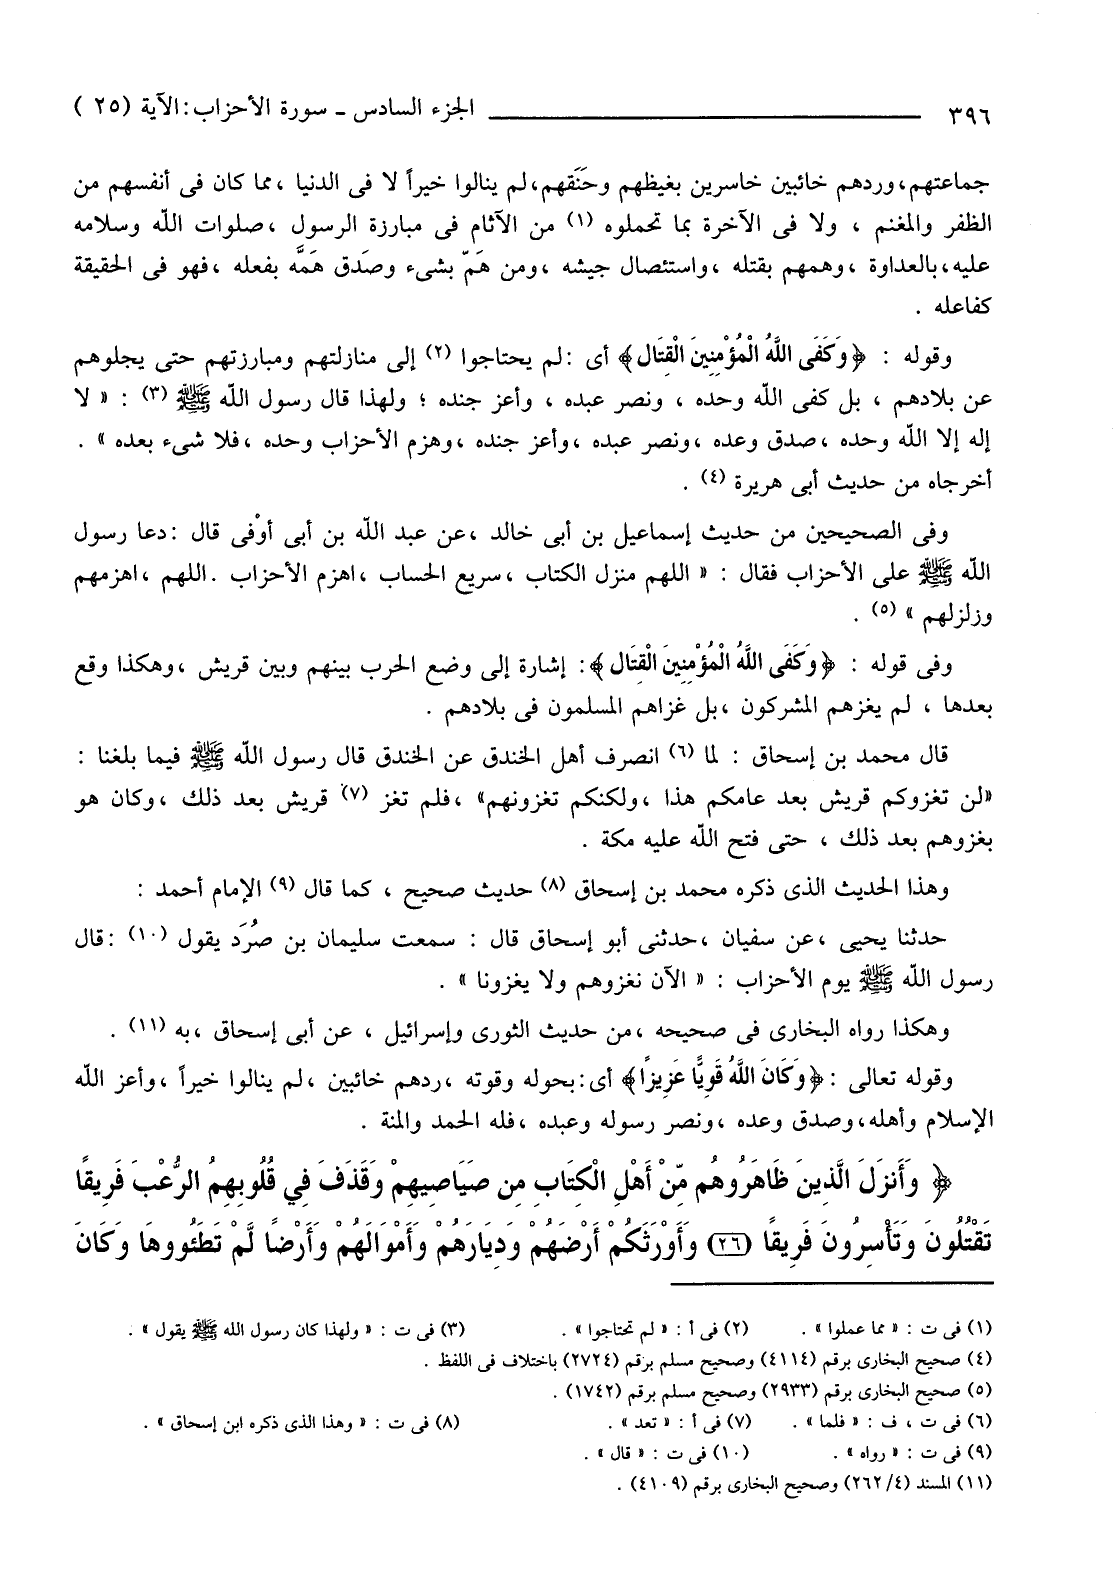 ٣٩٦ الجزء السادس ـ سورة الأحزاب: الآية (٢٥ )
جماعتهم، وردهم خائبين خاسرين بغيظهم وحَنَقهم، لم ينالوا خيراً لا فى الدنيا ، مما كان فى أنفسهم من
الظفر والمغنم ، ولا فى الآخرة بما تحملوه (١) من الآثام فى مبارزة الرسول ، صلوات الله وسلامه
عليه، بالعداوة ، وهمهم بقتله ، واستئصال جيشه ، ومن هَمّ بشىء وصَدق هَمَّه بفعله ، فهو فى الحقيقة
كفاعله .
وقوله : ﴿وَكَفَى اللَّهُ الْمُؤْمِنِينَ الْقِتَال﴾ أى : لم يحتاجوا (٢) إلى منازلتهم ومبارزتهم حتى يجلوهم
عن بلادهم ، بل كفى الله وحده ، ونصر عبده ، وأعز جنده ؛ ولهذا قال رسول الله ﷺ (٣) : « لا
إله إلا الله وحده ، صدق وعده ، ونصر عبده ، وأعز جنده ، وهزم الأحزاب وحده ، فلا شىء بعده » .
أخرجاه من حديث أبى هريرة (٤) .
وفى الصحيحين من حديث إسماعيل بن أبى خالد ، عن عبد الله بن أبى أوْفى قال : دعا رسول
الله ﷺ على الأحزاب فقال : « اللهم منزل الكتاب ، سريع الحساب ، اهزم الأحزاب . اللهم ، اهزمهم
وزلزلهم » (٥) .
وفى قوله : ﴿وَكَفَى اللَّهُ الْمُؤْمِنِينَ الْقِتَال﴾: إشارة إلى وضع الحرب بينهم وبين قريش ، وهكذا وقع
بعدها ، لم يغزهم المشركون ، بل غزاهم المسلمون فى بلادهم .
قال محمد بن إسحاق : لما (٦) انصرف أهل الخندق عن الخندق قال رسول الله ﷺ فيما بلغنا :
«لن تغزوكم قريش بعد عامكم هذا ، ولكنكم تغزونهم» ، فلم تغز (٧) قريش بعد ذلك ، وكان هو
يغزوهم بعد ذلك ، حتى فتح الله عليه مكة .
وهذا الحديث الذى ذكره محمد بن إسحاق (٨) حديث صحيح ، كما قال (٩) الإمام أحمد :
حدثنا يحيى ، عن سفيان ، حدثنى أبو إسحاق قال : سمعت سليمان بن صُرَد يقول (١٠) : قال
رسول الله ﷺ يوم الأحزاب : « الآن نغزوهم ولا يغزونا » .
وهكذا رواه البخارى فى صحيحه ، من حديث الثورى وإسرائيل ، عن أبى إسحاق ، به (١١) .
وقوله تعالى : ﴿وَكَانَ اللَّهُ قَوِيًّا عَزِيزًا﴾ أى: بحوله وقوته ، ردهم خائبين ، لم ينالوا خيراً ، وأعز الله
الإسلام وأهله، وصدق وعده ، ونصر رسوله وعبده ، فله الحمد والمنة .
﴿ وَأَنزَلَ الَّذِينَ ظَاهَرُوهُم مِّنْ أَهْلِ الْكِتَابِ مِن صَيَاصِيهِمْ وَقَذَفَ فِي قُلُوبِهِمُ الرُّعْبَ فَرِيقًا
تَقْتُلُونَ وَتَأْسِرُونَ فَرِيقًا (٢٦) وَأَوْرَثَكُمْ أَرْضَهُمْ وَدِيَارَهُمْ وَأَمْوَالَهُمْ وَأَرْضًا لَّمْ تَطَئُوهَا وَكَانَ
(١) فى ت : « مما عملوا » . (٢) فى أ : « لم تحتاجوا » . (٣) فى ت : « ولهذا كان رسول الله ﷺ يقول » .
(٤) صحيح البخارى برقم (٤١١٤) وصحيح مسلم برقم (٢٧٢٤) باختلاف فى اللفظ .
(٥) صحيح البخارى برقم (٢٩٣٣) وصحيح مسلم برقم (١٧٤٢) .
(٦) فى ت ، ف : « فلما » . (٧) فى أ : « تعد » . (٨) فى ت : « وهذا الذى ذكره ابن إسحاق » .
(٩) فى ت : « رواه » . (١٠) فى ت : « قال » .
(١١) المسند (٢٦٢/٤) وصحيح البخارى برقم (٤١٠٩) .